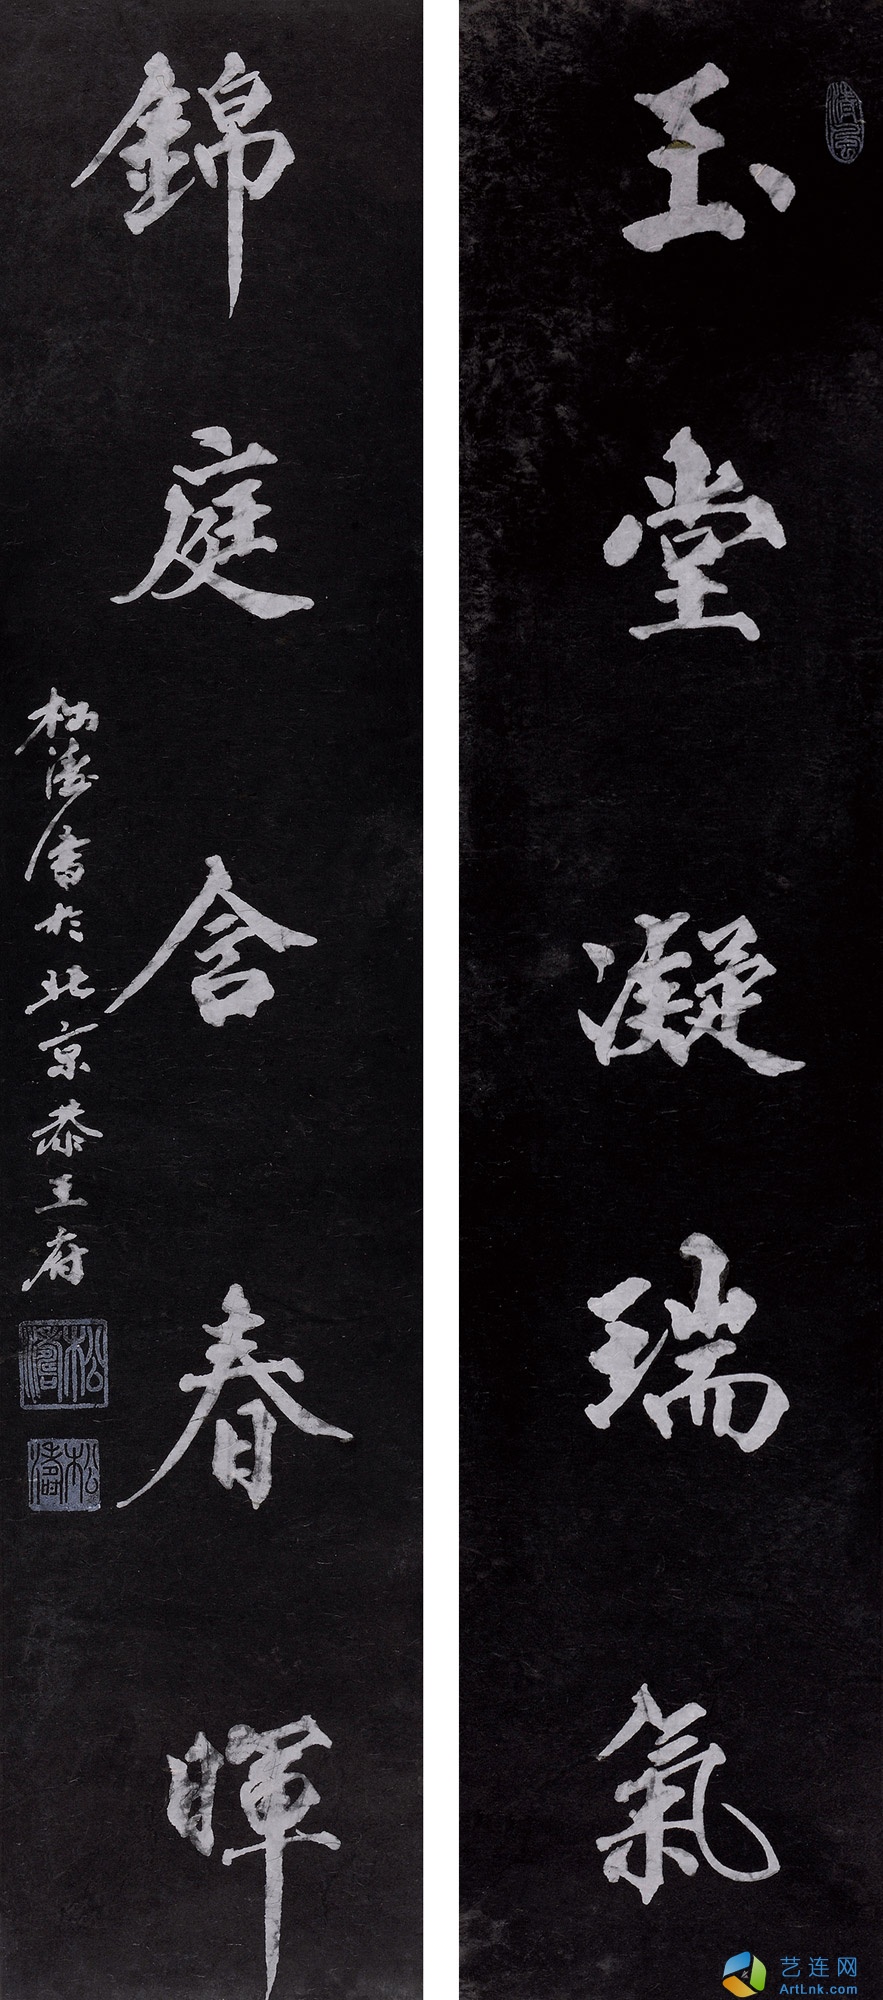 玉堂凝瑞氣
錦庭含春暉
松濤書於北京恭王府
松濤
松濤
艺连网
ArtLnk.com